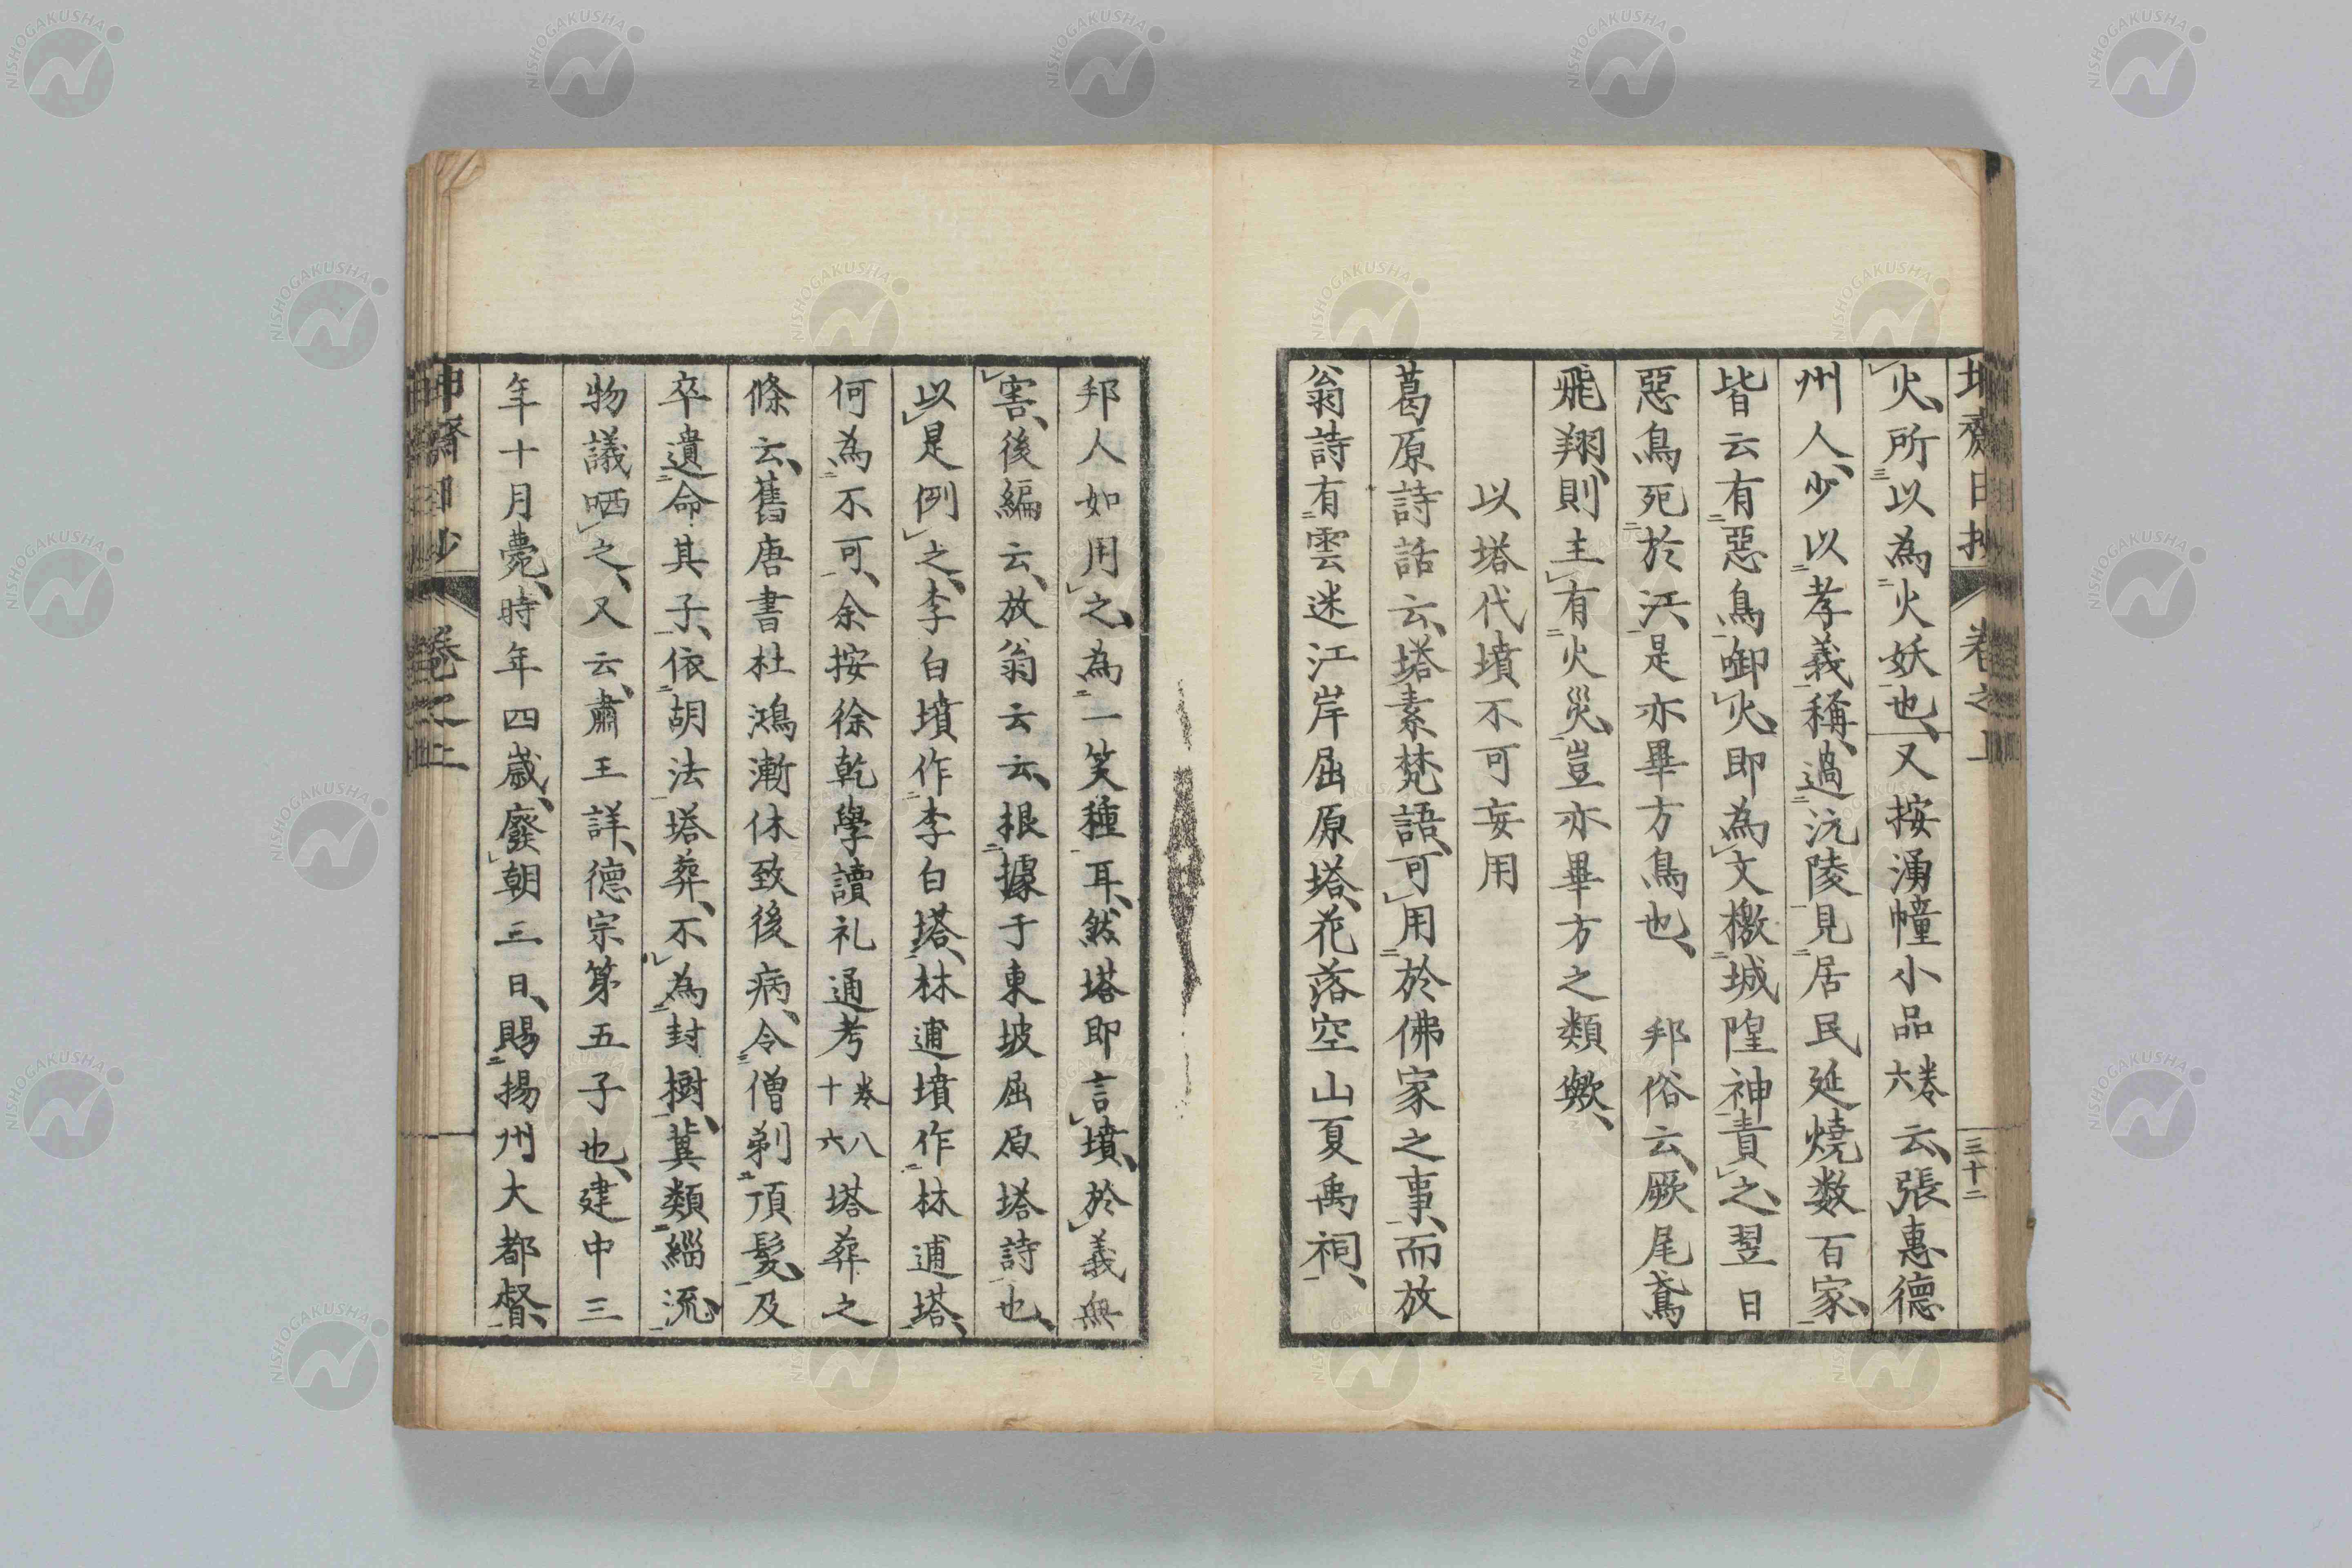 火、所以為火妖也、又按湧幢小品卷六云、張惠德
州人、少以孝義稱、過沅陵見居民延燒数百家、
皆云有惡鳥啣火、即為文檄城隍神責之、翌日
惡鳥死於江、是亦畢方鳥也、　邦俗云、厥尾鳶
飛翔、則主有火災、豈亦畢方之類歟、
以塔代墳不可妄用
葛原詩話云、塔素梵語、可用於佛家之事、而放
翁詩有雲迷江岸屈原塔、花落空山夏禹祠、
邦人如用之、為一笑種耳、然塔即言墳、於義無
害、後編云、放翁云云、根據于東坡屈原塔詩也、
以是例之、李白墳作李白塔、林逋墳作林逋塔、
何為不可、余按徐乾學讀礼通考卷八十六塔葬之
條云、舊唐書杜鴻漸休致後病、令僧剃頂髮、及
卒遺命其子、依胡法塔葬、不為封樹、冀類緇流、
物議哂之、又云、肅王詳、德宗第五子也、建中三
年十月薨、時年四歲、廢朝三日、賜揚州大都督、
卷之上
三十二
NISHOGAKUSHA